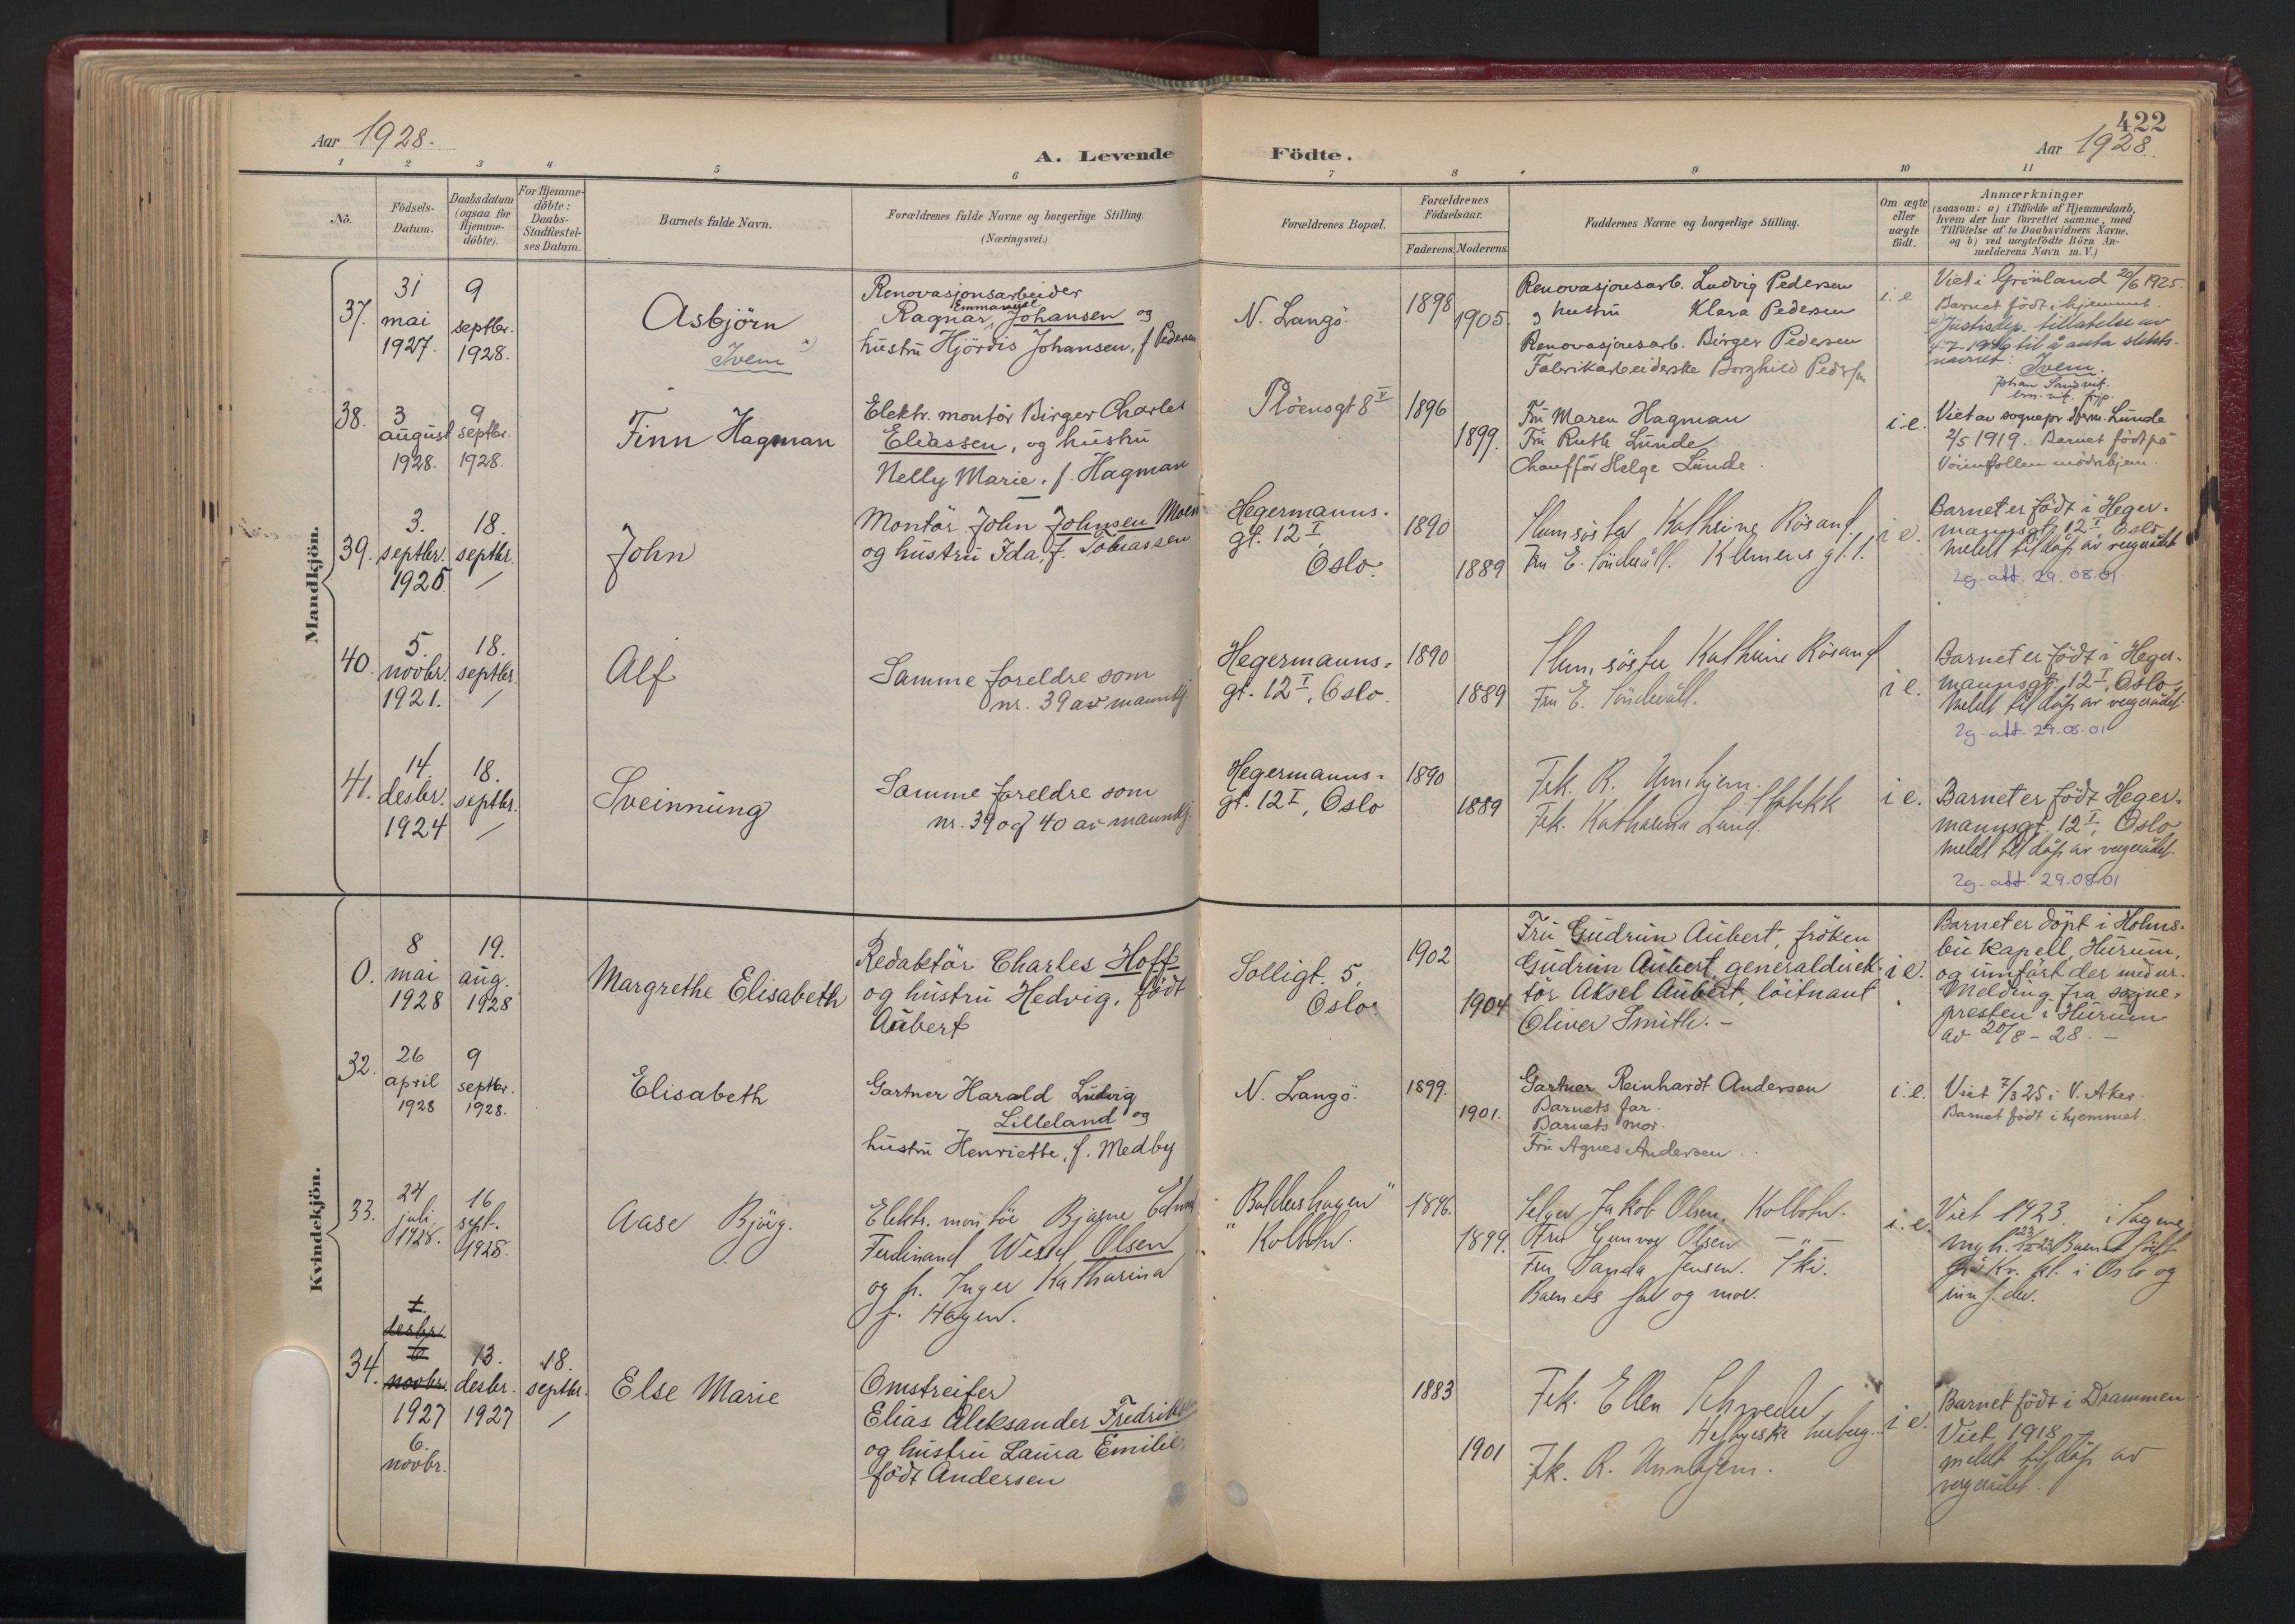 422
Aar 1928.
A. Levende Födte.
Aar 1928.
1 2 3 4 5 6 7 8 9 10 11
No.
Födsels-
Datum.
Daabsdatum
(ogsaa for
Hjemme-
döbte).
For Hjemme-
döbte:
Daabs-
Stadfestel-
ses Datum.
Barnets fulde Navn.
Forældrenes fulde Navne og borgerlige Stilling.
(Næringsvei.)
Forældrenes Bopæl.
Forældrenes
Födselsaar.
Faderens. Moderens.
Faddernes Navne og borgerlige Stilling.
Om ægte
eller
uægte
födt.
Anmærkninger
(saasom: a) i Tilfælde af Hjemmedaab,
hvem der har forrettet samme, med
Tilföielse af to Daabsvidners Navne.
og b) ved uægtefödte Börn An-
melderens Navn m. V.)
Mandkjön.
37.
31
mai
1927.
9
septbr.
1928.
Asbjörn
Ivem x)
Renovasjonsarbeider
Emmanuel
Ragnar Johansen og
hustru Hjördis Johansen, f Pedersen
N. Langö.
1898
1905.
Renovasjonsarb. Ludvig Pedersen
og hustru Klara Pedersen
Renovasjonsarb. Birger Pedersen
Fabrikarbeiderske Borghild Pedersen
i e
Viet i Grönland 20/6 1925.
Barnet födt i hjemmet.
x) Justisdep. tillatelse av
til å anta slekts-
navnet: Ivem.
38.
3
august
1928.
9
septbr.
1928.
Finn Hagman
Elektr. montör Birger Charles
Eliassen, og hustru
Nelly Marie, f. Hagman
Plöensgt 8 V
1896
1899.
Fru Maren Hagman
Fru Ruth Lunde
Chaufför Helge Lunde.
i.e.
Viet av sognepr. Lunde
2/5 1919. Barnet födt på
Voienvollen mödrehjem.
39.
3.
septbr.
1925
18.
septbr.
/
John
Montör John Johnsen Moen
og hustru Ida, f. Tobiassen
Hegermanns.
gt. 12 I
Oslo.
1890
1889
Slumsöster Kathrine Rösand
Fru E. Klemens gt. 1.
i e.
Barnet er födt i Heger-
mannsgt 12 I, Oslo,
meldt til dåp av vergerådet
lg. att. 29.08.01
40.
5.
novbr.
1921.
18.
septbr.
/
Alf
Samme foreldre som
nr. 39 av mannkj.
Hegermanns-
gt. 12 I, Oslo.
1890
1889
Slumsöster Kathrine Rösand
Fru E.
i e.
Barnet er födt i Heger-
mannsgt. 12 I, Oslo,
meldt til dåp av vergerådet.
lg. att. 29.08.01
41.
14.
desbr.
1924
18.
septbr.
/
Sveinnung
Samme foreldre som
nr. 39 og 40 av mannkj.
Hegermanns-
gt. 12 I, Oslo
1890
1889
Frk. R. Unnhjem.
Stabekk
Frk. Katharina Lund.
i e.
Barnet er födt Heger-
mannsgt. 12 I, Oslo
meldt til dåp av vergerådet.
lg. att. 29.08.01
Kvindekjön.
0.
8
mai
1928
19.
aug.
1928
Margrethe Elisabeth
Redaktör Charles Hoff
og hustru Hedvig, födt
Aubert
Solligt. 5,
Oslo.
1902
1904
Fru Gudrun Aubert, fröken
Gudrun Aubert, generaldirek-
tör Aksel Aubert, löitnant
Oliver Smith. -
i e.
Barnet er döpt i Holms-
bu kapell, Hurum,
og innfört der med nr.
Melding fra sogne-
presten i Hurum
av 20/8 - 28. -
32.
26
april
1928
9
septbr.
1928.
Elisabeth
Gartner Harald Ludvig
Lilleland og
hustru Henriette, f. Medby
N. Langö.
1899.
1901.
Gartner Reinhardt Andersen
Barnets far.
Barnets mor.
Fru Agnes Andersen.
i.e.
Viet 7/3 25 i V. Aker.
Barnet födt i hjemmet.
33.
24
juli
1928.
16
sept.
1928.
Aase Björg.
Elektr. montör Bjarne
Ferdinand Wessel Olsen
og h. Inger Katharina
f. Hagen.
"Baldershagen"
Kolbotn.
1896.
1899.
Selger Jakob Olsen. Kolbotn.
Fru Gunvor Olsen - " -
Fru Jensen. Ski.
Barnets far og mor.
i. e.
Viet 1923 i Sagene
Barnet födt
på Kv. kl. i Oslo og
innf. der.
34.
1.
desbr.
6
novbr.
1927
6.
novbr.
13.
desbr.
1927
18.
septbr.
/
Else Marie
Omstreifer
Elias Aleksander Fredriksen
og hustru Laura Emilie,
födt Andersen
1883
1901
Frk. Ellen
Frk. R. Unnhjem.
i e.
Barnet födt i Drammen
Viet 1918
meldt til dåp av
vergerådet.